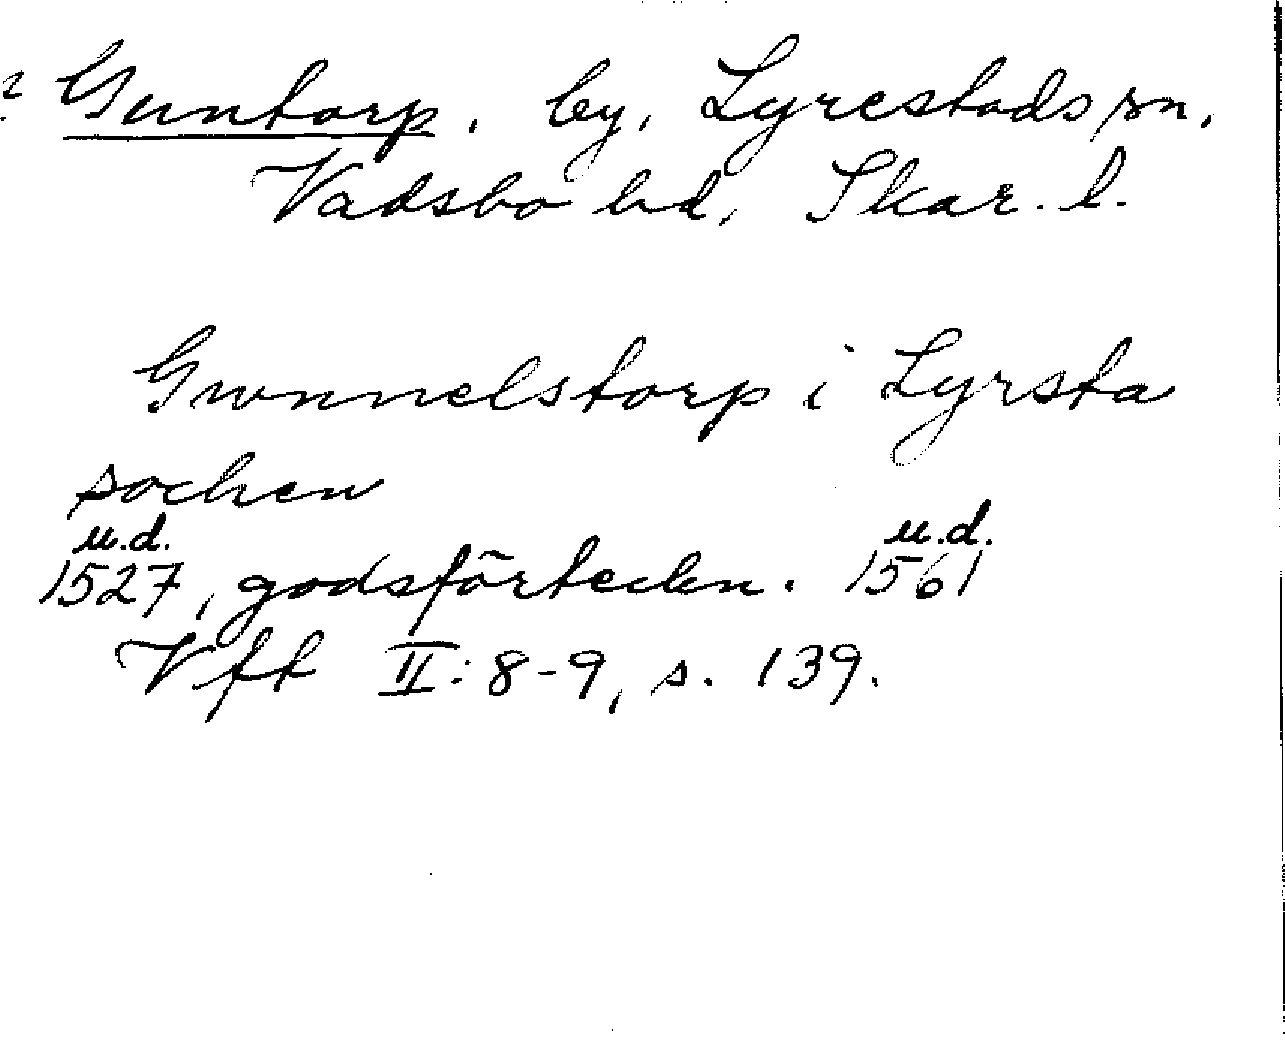 ? Guntorp, by, Lyrestads sn,
Vadsbo hd, Skar. l.
Gwnnelstorp i Lyrsta
sochen
u.d. u.d.
1527, godsförteckn. 1561
Vft II: 8-9, s. 139.